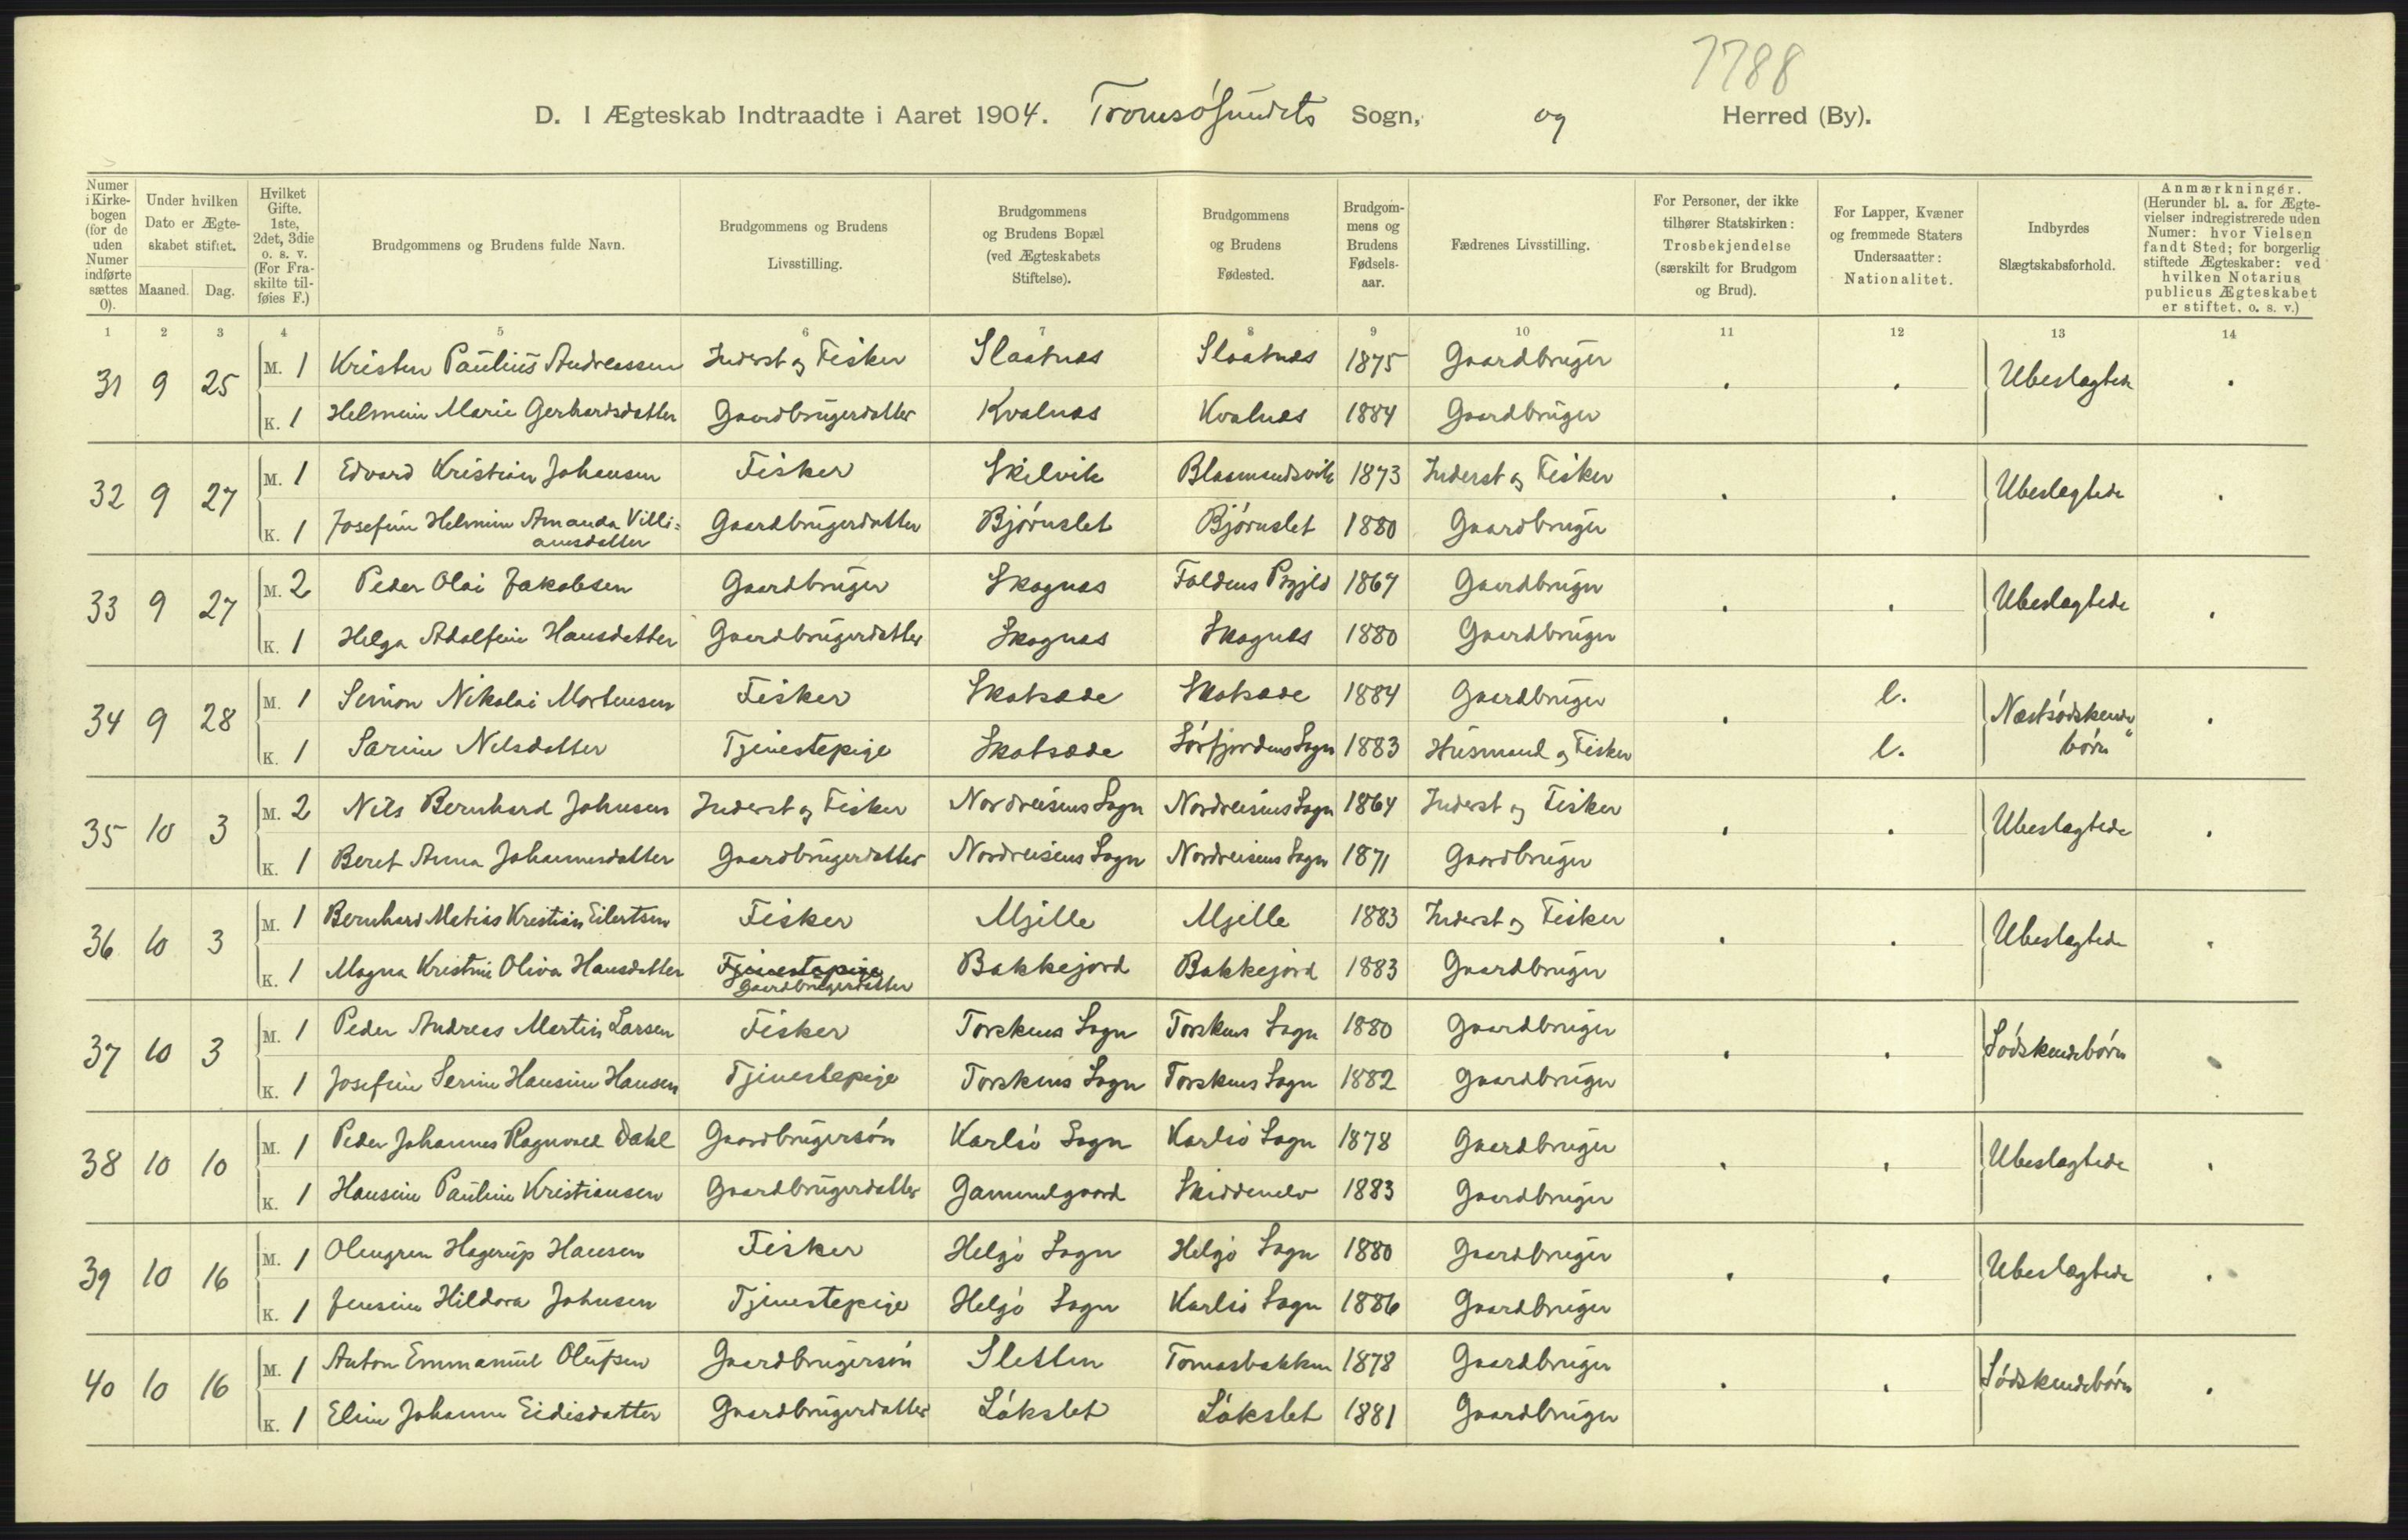 7788
D. I Ægteskab Indtraadte i Aaret 1904. Tromsøsundets Sogn, og Herred (By).
Numer i Kirkebogen (for de uden Numer indførte sættes 0). | Under hvilken Dato er Ægteskabet stiftet. Maaned. Dag. | Hvilket Gifte. 1ste, 2det, 3die o. s. v. (For Fraskilte tilføies F.) | Brudgommens og Brudens fulde Navn. | Brudgommens og Brudens Livsstilling. | Brudgommens og Brudens Bopæl (ved Ægteskabets Stiftelse). | Brudgommens og Brudens Fødested. | Brudgommens og Brudens Fødselsaar. | Fædrenes Livsstilling. | For Personer, der ikke tilhører Statskirken: Trosbekjendelse (særskilt for Brudgom og Brud). | For Lapper, Kvæner og fremmede Staters Undersaatter: Nationalitet. | Indbyrdes Slægtskabsforhold. | Anmærkninger. (Herunder bl. a. for Ægtevielser indregistrerede uden Numer: hvor Vielsen fandt Sted; for borgerlig stiftede Ægteskaber: ved hvilken Notarius publicus Ægteskabet er stiftet, o. s. v.)
1 2 3 4 5 6 7 8 9 10 11 12 13 14
31 9 25 M. 1 Kristen Paulius Andreassen Inderst og Fisker Slaatnæs Slaatnæs 1875 Gaardbruger Ubeslægtede
K. 1 Helmine Marie Gerhardsdatter Gaardbrugerdatter Kvalnæs Kvalnæs 1884 Gaardbruger
32 9 27 M. 1 Edvard Kristian Johansen Fisker Skilvik Blaamandsvik 1873 Inderst og Fisker Ubeslægtede
K. 1 Josefine Helmine Amanda Villi= Gaardbrugerdatter Bjørnslet Bjørnslet 1880 Gaardbruger
amsdatter
33 9 27 M. 2 Peder Olai Jakobsen Gaardbruger Skognæs Foldens Prgjld 1867 Gaardbruger Ubeslægtede
K. 1 Helga Adolfine Hansdatter Gaardbrugerdatter Skognæs Skognæs 1880 Gaardbruger
34 9 28 M. 1 Simon Nikolai Mortensen Fisker Skatsæde Skatsæde 1884 Gaardbruger l. Næstsødskende
K. 1 Sarine Nilsdatter Tjenestepige Skatsæde Sørfjordens Sogn 1883 Husmand og Fisker l. børn
35 10 3 M. 2 Nils Bernhard Johnsen Inderst og Fisker Nordreisens Sogn Nordreisens Sogn 1864 Inderst og Fisker Ubeslægtede
K. 1 Beret Anna Johannesdatter Gaardbrugerdatter Nordreisens Sogn Nordreisens Sogn 1871 Gaardbruger
36 10 3 M. 1 Bernhard Matias Kristian Eilertsen Fisker Mjelle Mjelle 1883 Inderst og Fisker Ubeslægtede
K. 1 Magna Kristine Oliva Hansdatter Tjenestepige Bakkejord Bakkejord 1883 Gaardbruger
Gaardbrugerdatter
37 10 3 M. 1 Peder Andreas Martin Larsen Fisker Torskens Sogn Torskens Sogn 1880 Gaardbruger Sødskendebørn
K. 1 Josefine Serine Hansine Hansen Tjenestepige Torskens Sogn Torskens Sogn 1882 Gaardbruger
38 10 10 M. 1 Peder Johannes Ragnvald Dahl Gaardbrugersøn Karlsø Sogn Karlsø Sogn 1878 Gaardbruger Ubeslægtede
K. 1 Hansine Pauline Kristiansen Gaardbrugerdatter Gammelgaard Skiddenelv 1883 Gaardbruger
39 10 16 M. 1 Hagerup Hansen Fisker Helgø Sogn Helgø Sogn 1880 Gaardbruger Ubeslægtede
K. 1 Jensine Hildora Johnsen Tjenestepige Helgø Sogn Karlsø Sogn 1886 Gaardbruger
40 10 16 M. 1 Anton Emmanuel Olufsen Gaardbrugersøn Sletten Tomasbakken 1878 Gaardbruger Sødskendebørn
K. 1 Eline Johanna Eidisdatter Gaardbrugerdatter Løkslet Løkslet 1881 Gaardbruger